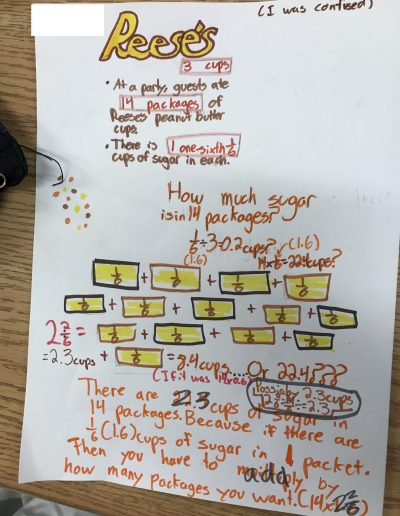 (I was confused)
Reese's
3 cups
• At a party, guests ate
14 packages of
Reese's peanut butter
cups.
• There is 1 one-sixth 1/6
cups of sugar in each.
How much sugar
is in 14 packages?
1/6 ÷ 3 = 0.2 cups? (1.6)
(1.6) 14 x 1/6 = 22.4 cups?
1/6 + 1/6 + 1/6 + 1/6
1/6 + 1/6 + 1/6 + 1/6 + 1/6
2 2/6 = 1/6 + 1/6 + 1/6 + 1/6
= 2.3 cups + 1/6 = 8.4 cups.... Or 22.4???
(If it was 14x0.6)
Possibly 2.3 cups
There are 2.3 cups of sugar in
14 packages. Because if there are
1/6 (1.6) cups of sugar in 1 packet.
Then you have to add by
how many packages you want. (14x 2 2/6